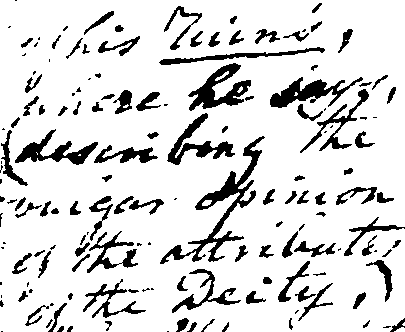 of his Ruins,
where he says,
(describing the
vulgar opinion
of the attributes
of the Deity,)